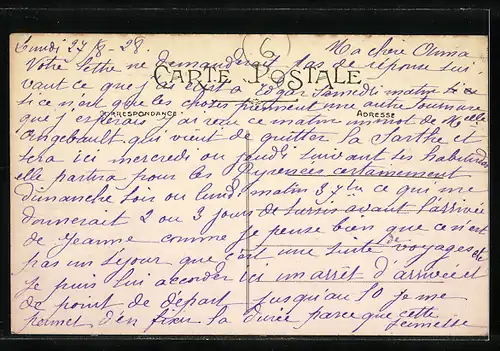 Lundi 27/8-28. Ma chère Emma
Votre lettre ne demanderait pas de réponse sui
vant ce que j'ai écrit à Edgar samedi matin
si ce n'est que les choses prennent une autre tournure
CARTE POSTALE
CORRESPONDANCE
ADRESSE
que j'espérais j'ai reçu ce matin un mot de Melle
Angebault qui vient de quitter la Sarthe et
sera ici mercredi ou jeudi suivant ses habitudes
elle partira pour les Pyrénées certainement
dimanche soir ou lundi matin 3 7bre ce qui me
donnerait 2 ou 3 jours de sursis avant l'arrivée
de Jeanne comme je pense bien que ce n'est
pas un séjour que c'est une suite de voyages etc
je puis lui accorder ici un arrêt d'arrivée et
de point de départ jusqu'au 10 je me
permet d'en fixer la durée parce que cette
jeunesse